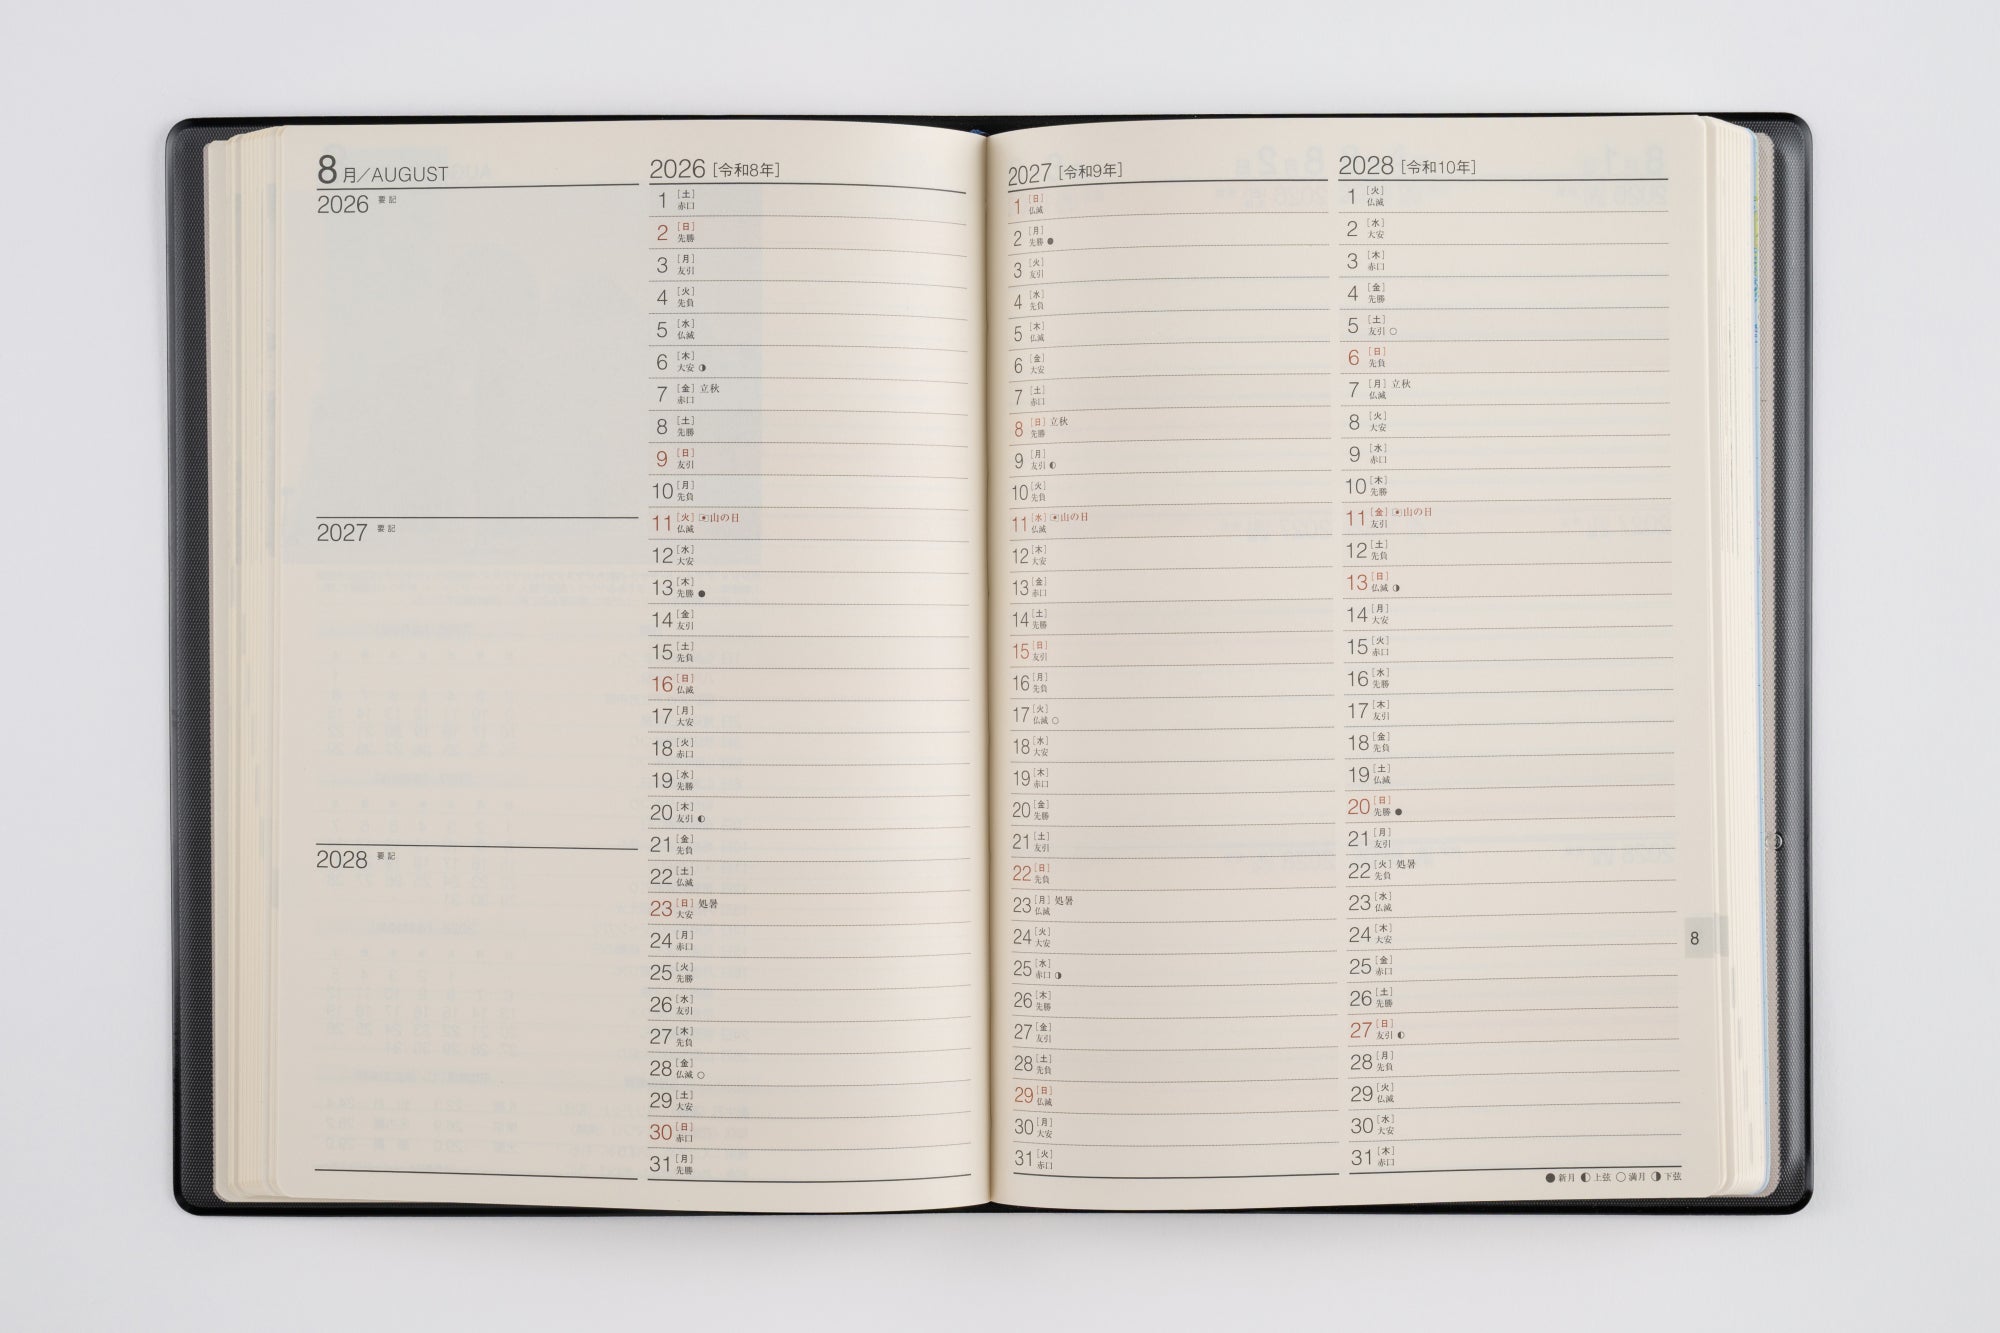 8月／AUGUST
2026 要記
2027 要記
2028 要記
2026［令和8年］
1 ［土］
赤口
2 ［日］
先勝
3 ［月］
友引
4 ［火］
先負
5 ［水］
仏滅
6 ［木］
大安 ◑
7 ［金］ 立秋
赤口
8 ［土］
先勝
9 ［日］
友引
10 ［月］
先負
11 ［火］ 山の日
仏滅
12 ［水］
大安
13 ［木］
先勝 ●
14 ［金］
友引
15 ［土］
先負
16 ［日］
仏滅
17 ［月］
大安
18 ［火］
赤口
19 ［水］
先勝
20 ［木］
友引 ◐
21 ［金］
先負
22 ［土］
仏滅
23 ［日］ 処暑
大安
24 ［月］
赤口
25 ［火］
先勝
26 ［水］
友引
27 ［木］
先負
28 ［金］
仏滅 ○
29 ［土］
大安
30 ［日］
赤口
31 ［月］
先勝
2027［令和9年］
1 ［日］
仏滅
2 ［月］
先勝 ●
3 ［火］
友引
4 ［水］
先負
5 ［木］
仏滅
6 ［金］
大安
7 ［土］
赤口
8 ［日］ 立秋
先勝
9 ［月］
友引 ◐
10 ［火］
先負
11 ［水］ 山の日
仏滅
12 ［木］
大安
13 ［金］
赤口
14 ［土］
先勝
15 ［日］
友引
16 ［月］
先負
17 ［火］
仏滅 ○
18 ［水］
大安
19 ［木］
赤口
20 ［金］
先勝
21 ［土］
友引
22 ［日］
先負
23 ［月］ 処暑
仏滅
24 ［火］
大安
25 ［水］
赤口 ◑
26 ［木］
先勝
27 ［金］
友引
28 ［土］
先負
29 ［日］
仏滅
30 ［月］
大安
31 ［火］
赤口
2028［令和10年］
1 ［火］
仏滅
2 ［水］
大安
3 ［木］
赤口
4 ［金］
先勝
5 ［土］
友引 ○
6 ［日］
先負
7 ［月］ 立秋
仏滅
8 ［火］
大安
9 ［水］
赤口
10 ［木］
先勝
11 ［金］ 山の日
友引
12 ［土］
先負
13 ［日］
仏滅 ◑
14 ［月］
大安
15 ［火］
赤口
16 ［水］
先勝
17 ［木］
友引
18 ［金］
先負
19 ［土］
仏滅
20 ［日］
先勝 ●
21 ［月］
友引
22 ［火］ 処暑
先負
23 ［水］
仏滅
24 ［木］
大安
25 ［金］
赤口
26 ［土］
先勝
27 ［日］
友引 ◐
28 ［月］
先負
29 ［火］
仏滅
30 ［水］
大安
31 ［木］
赤口
●新月 ◐上弦 ○満月 ◑下弦
8